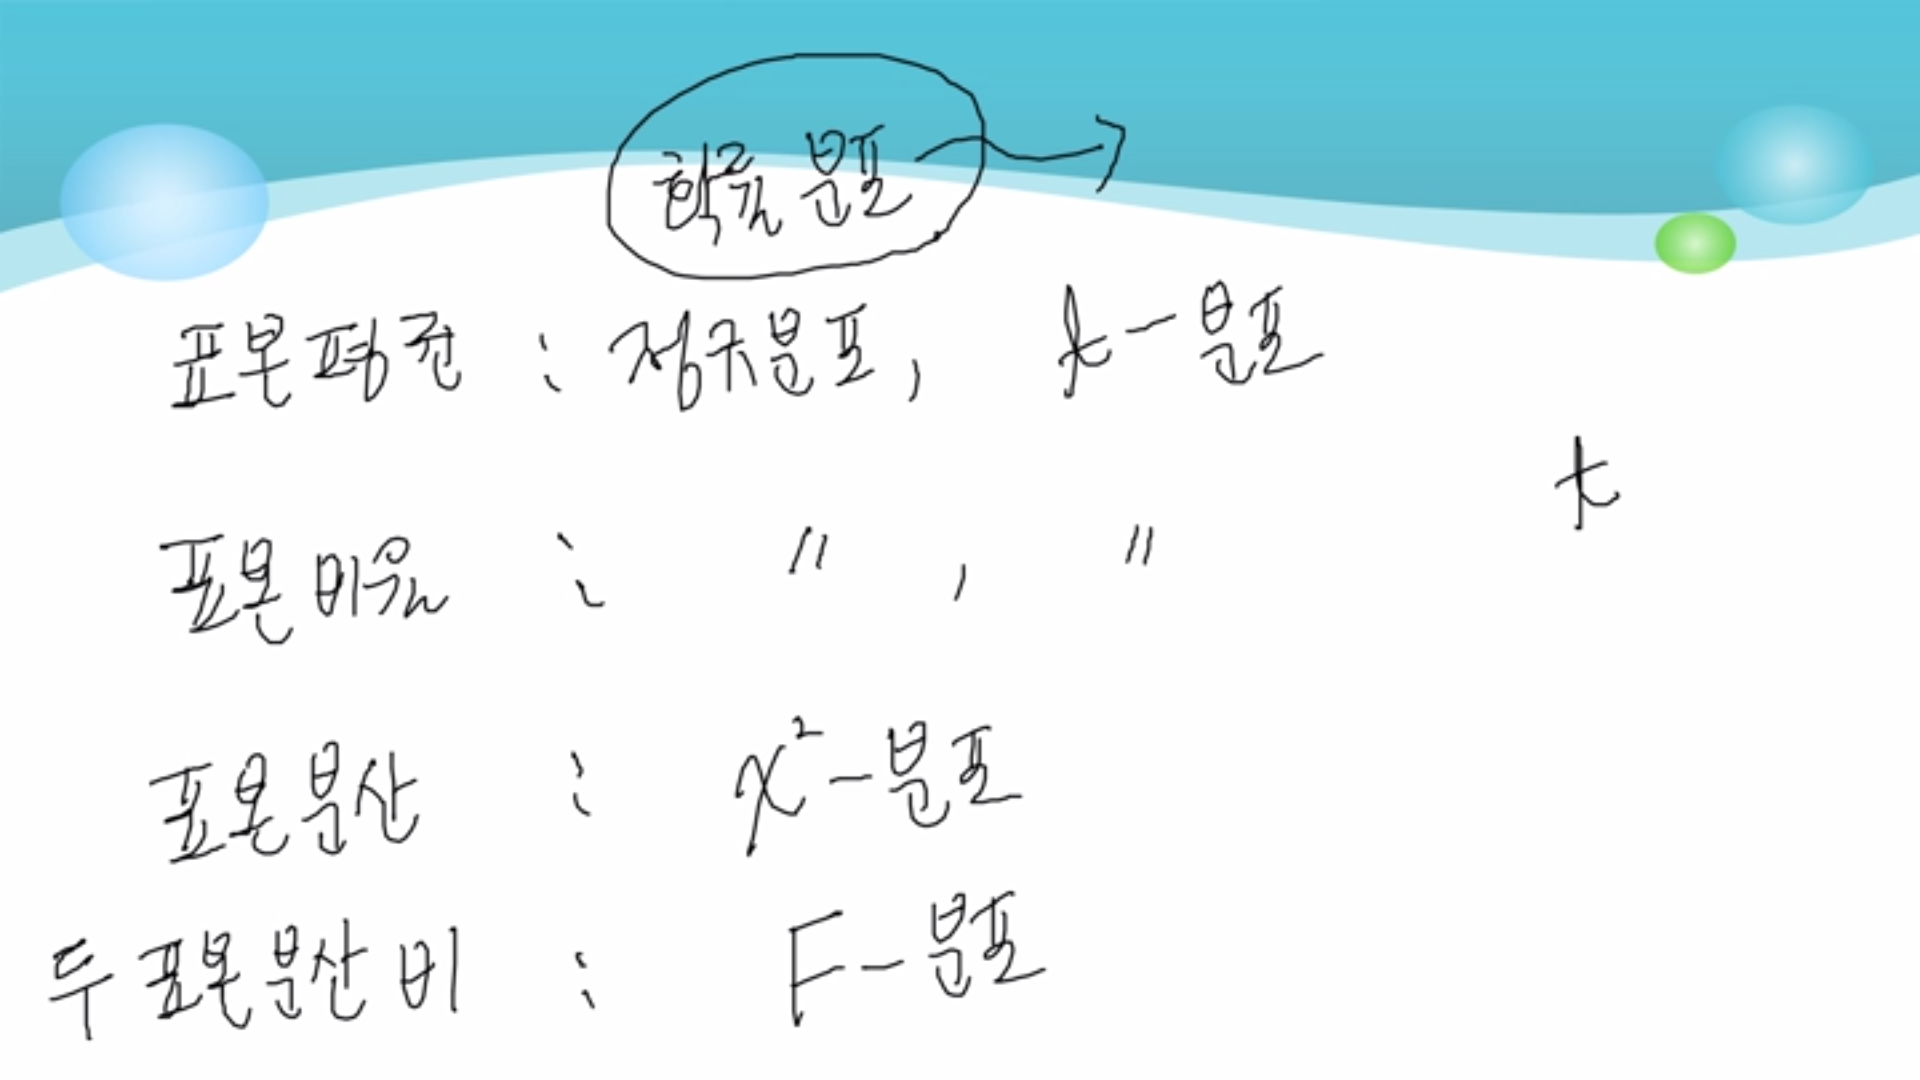 확률분포
표본평균 : 정규분포, t-분포
t
표본비율 : 〃 , 〃
표본분산 : χ²-분포
두 표본분산비 : F-분포